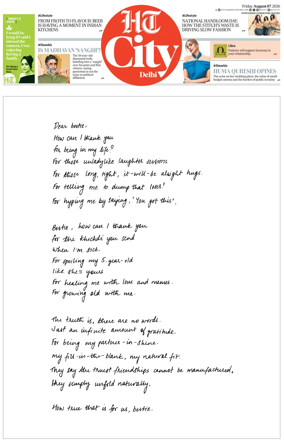 Friday, August 07, 2020
#Lifestyle
FROM FROTH TO FLAVOUR, BEER
IS HAVING A MOMENT IN INDIAN
KITCHENS
#Cinendia
IS MADHAVAN 'SANGHI'?
HT
City
Delhi
#Lifestyle
NATIONAL HANDLOOM DAY:
HOW THE STITCH'S WASTE IS
DRIVING SLOW FASHION
Libra
#Cinendia
HUMA QURESHI OPINES
Dear bestie,
How can I thank you
For being in my life?
For those unladylike laughter sessions
For those long, tight, it-will-be alright hugs.
For telling me to dump that loser!
For hyping me by saying, 'You got this'.
Bestie, how can I thank you
for the khichdi you send
when I'm sick.
For spoiling my 5-year-old
like she's yours
For healing me with love and
For growing old with me.
The truth is, there are no words.
Just an infinite amount of gratitude.
For being my partner-in-shine.
My fill-in-the-blank, my natural fit.
They say the truest friendships cannot be manufactured,
they simply unfold naturally.
How true that is for us, bestie.